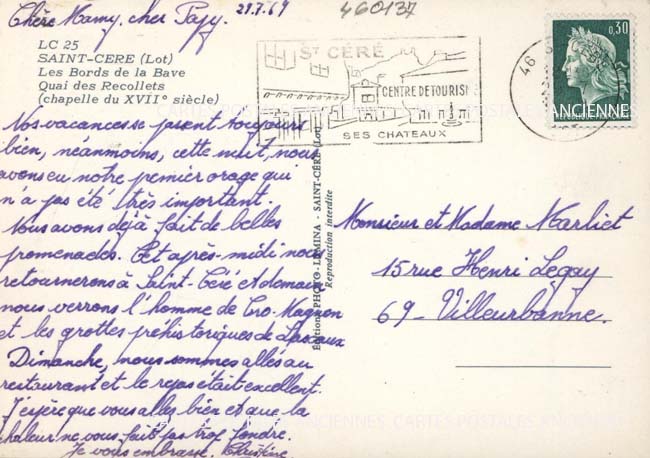 29.7.69
460137
Chère Mamy, cher Papy.
LC 25
SAINT-CERE (Lot)
Les Bords de la Bave
Quai des Recollets
(chapelle du XVIIe siècle)
Nos vacances se passent toujours
bien, néanmoins, cette nuit, nous
avons eu notre premier orage qui
n'a pas été très important.
Nous avons déjà fait de belles
promenades. Cet après-midi nous
retournerons à Saint-Céré et demain
nous verrons l'homme de Cro-Magnon
et les grottes préhistoriques de Lascaux
Dimanche, nous sommes allés au
restaurant et le repas était excellent.
J'espère que vous allez bien et que la
chaleur ne vous fait pas trop fondre.
Je vous embrasse. Christine
Editions PHOTO-LUMINA - SAINT-CÉRÉ (Lot)
Reproduction interdite
ST CÉRÉ
CENTRE DE TOURISM
SES CHATEAUX
46
0,30
Monsieur et Madame Marliet
15 rue Henri Legay
69 - Villeurbanne.
CARTES POSTALES ANCIENNES
CARTES POSTALES ANCIENNES